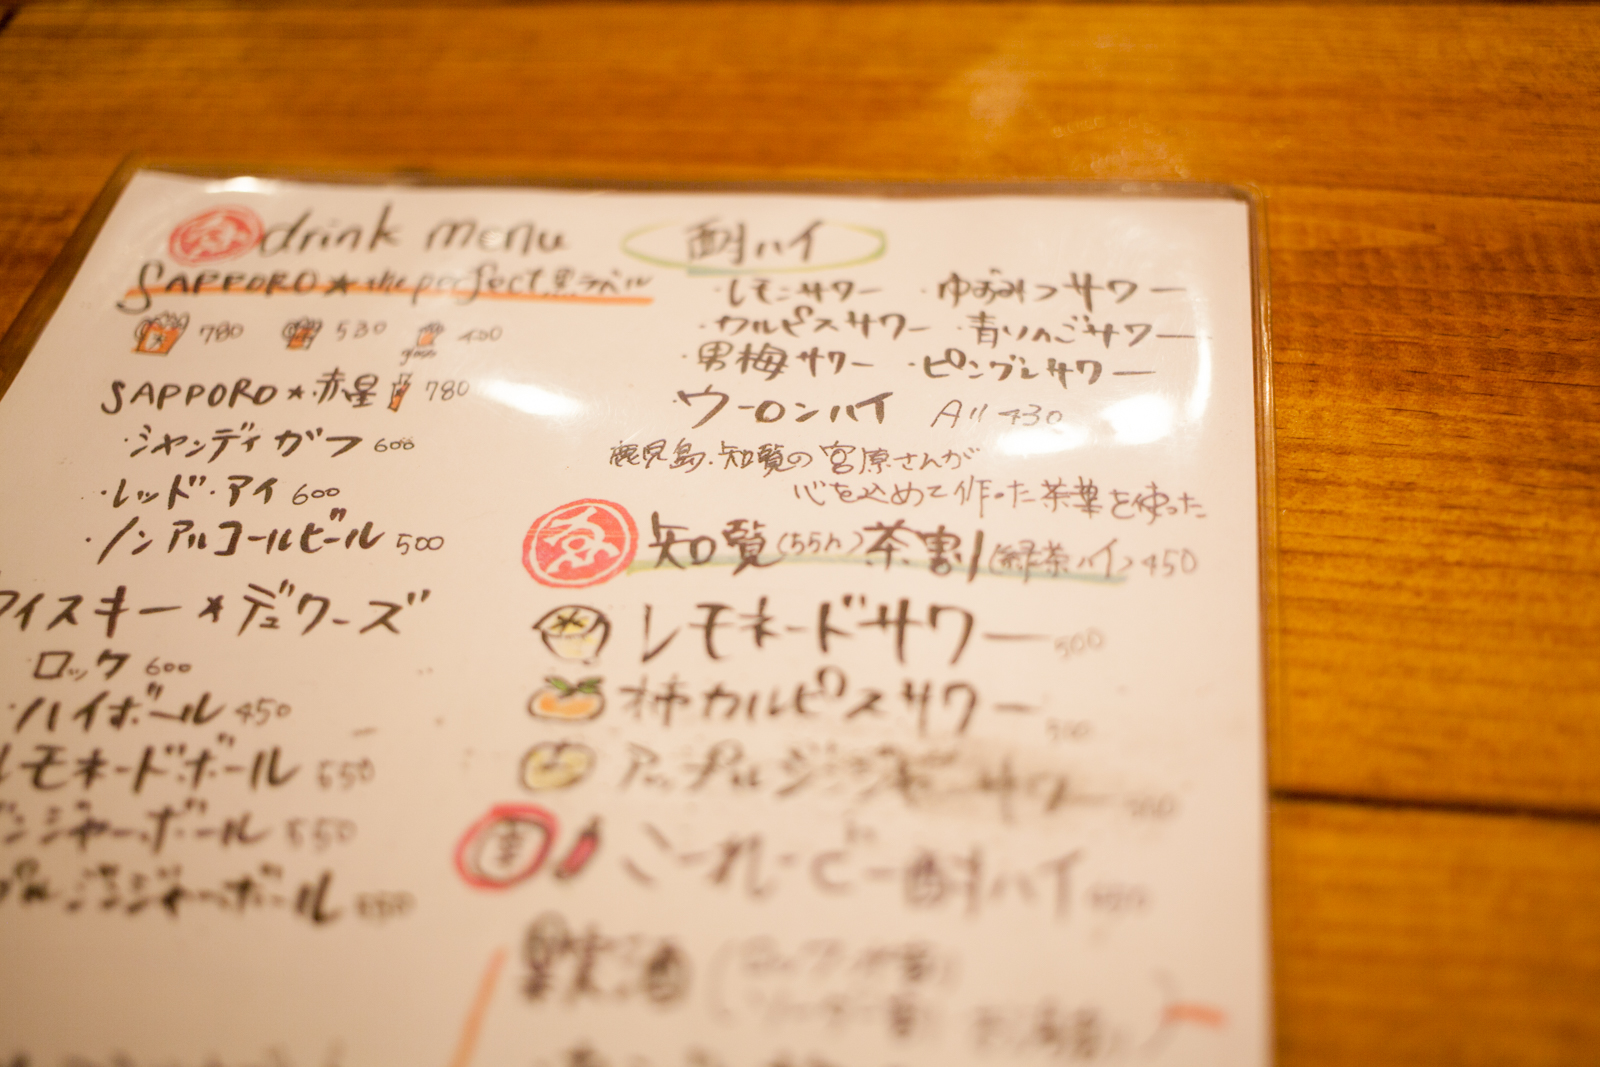 drink menu
SAPPORO★the perfect 黒ラベル
780 530 400
SAPPORO★赤星 780
・シャンディガフ 600
・レッド・アイ 600
・ノンアルコールビール 500
ウイスキー★デュワーズ
ロック 600
・ハイボール 450
レモネードボール 550
ジンジャーボール 550
ジンジャーボール 550
酎ハイ
・レモンサワー ・ゆずみつサワー
・カルピスサワー ・青りんごサワー
・男梅サワー ・ピングレサワー
・ウーロンハイ All 430
鹿児島・知覧の宮原さんが
心を込めて作った茶葉を使った
知覧(ちらん)茶割(緑茶ハイ)450
レモネードサワー 500
柿カルピスサワー 500
アップルジンジャーサワー 500
こーれーぐー酎ハイ
果実酒